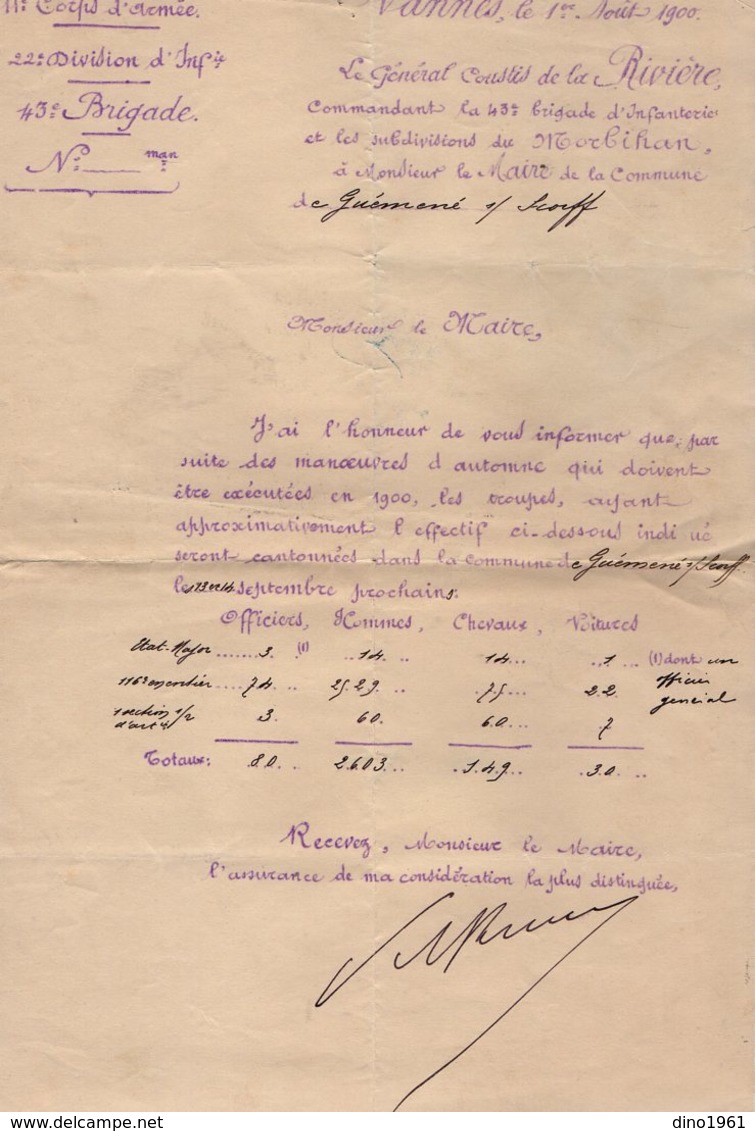 11e Corps d'Armée.
22e Division d'Infie
43e Brigade.
No man
Vannes, le 1er Août 1900.
Le Général Coustis de la Rivière,
Commandant la 43e brigade d'Infanterie
et les subdivisions du Morbihan,
à Monsieur le Maire de la Commune
de Guémené s/ Scorff
Monsieur le Maire,
J'ai l'honneur de vous informer que, par
suite des manœuvres d automne qui doivent
être exécutées en 1900, les troupes, ayant
approximativement l effectif ci-dessous indi ué
seront cantonnées dans la commune de Guémené s/ Scorff
les 13 et 14 septembre prochains:
Officiers, Hommes, Chevaux, Voitures
Etat-Major ....... 3. (1) ..14.. 14... .1... (1) dont un officier général
116e en entier .... 74.. 25.29.. .75.. 22.
1 section 1/2 d'artie 3. 60. 60... 7
Totaux: .80.. 2603... .149... .30..
Recevez, Monsieur le Maire,
l'assurance de ma considération la plus distinguée,
dino1961